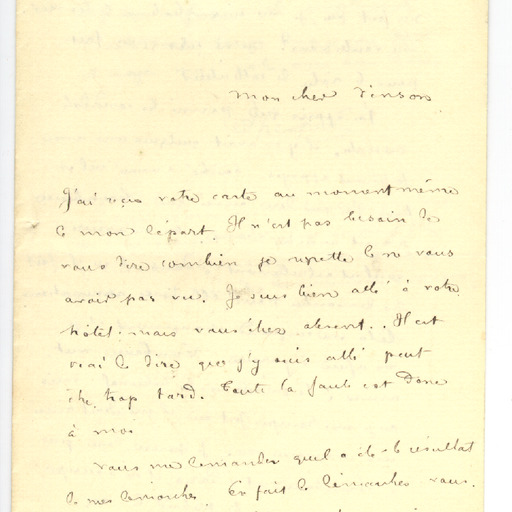 Mon cher Vinson
J'ai reçu votre carte au moment même
de mon départ. Il n'est pas besoin de
vous dire combien je regrette de ne vous
avoir pas vu. Je suis bien allé à votre
hôtel: mais vous étiez absent.. Il est
vrai de dire que j'y suis allé peut
être trop tard. Toute la faute est donc
à moi
Vous me demandez quel a été le résultat
de mes démarches. En fait de démarches vous